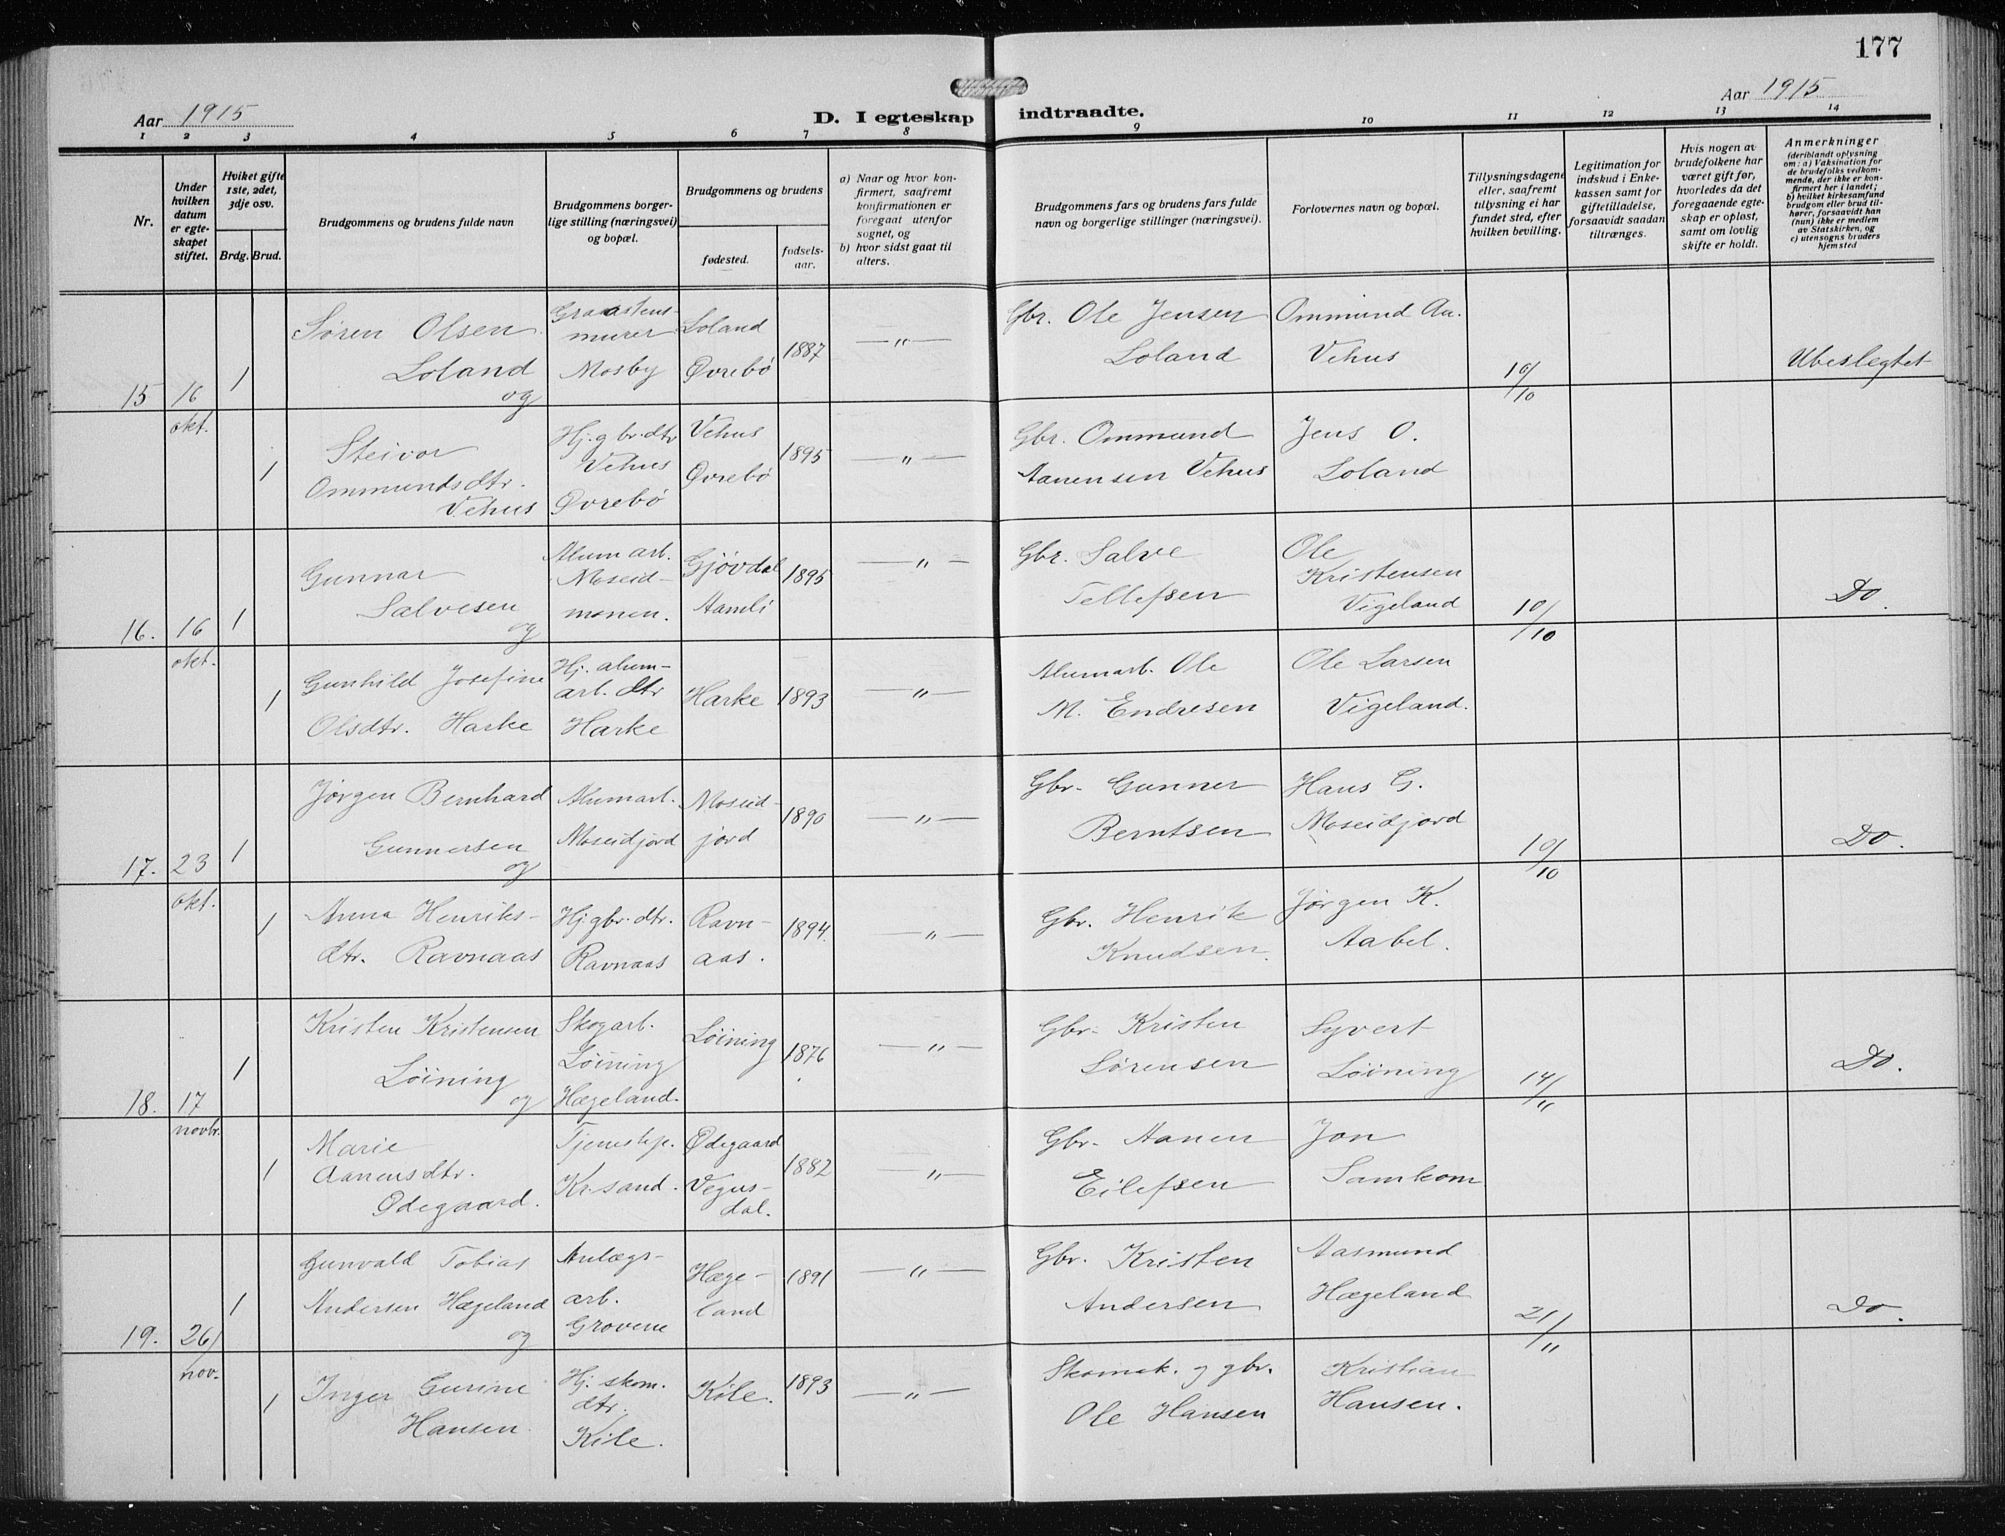 177
Aar 1915
D. I egteskap indtraadte.
Aar 1915
1 2 3 4 5 6 7 8 9 10 11 12 13 14
Nr.
Under hvilken datum er egteskapet stiftet.
Hviket gifte 1ste, 2det, 3dje osv.
Brdg. Brud.
Brudgommens og brudens fulde navn
Brudgommens borgerlige stilling (næringsvei) og bopæl.
Brudgommens og brudens
fødested.
fødselsaar.
a) Naar og hvor konfirmert, saafremt konfirmationen er foregaat utenfor sognet, og
b) hvor sidst gaat til alters.
Brudgommens fars og brudens fars fulde navn og borgerlige stillinger (næringsvei).
Forlovernes navn og bopæl.
Tillysningsdagene eller, saafremt tillysning ei har fundet sted, efter hvilken bevilling.
Legitimation for indskud i Enkekassen samt for giftetilladelse, forsaavidt saadan tiltrænges.
Hvis nogen av brudefolkene har været gift før, hvorledes da det foregaaende egteskap er opløst, samt om lovlig skifte er holdt.
Anmerkninger
(deriblandt oplysning om: a) Vaksination for de brudefolks vedkommende, der ikke er konfirmert her i landet; b) hvilket kirkesamfund brudgom eller brud tilhører, forsaavidt han (hun) ikke er medlem av Statskirken, og c) utensogns bruders hjemsted
15 16 okt. 1 Søren Olsen Loland og Graastensmurer Mosby Loland Øvrebø 1887 — " — Gbr. Ole Jensen Loland Ommund Aa. Vehus 10/10 Ubeslegtet
1 Steivor Ommundsdtr. Vehus Hj. gbr. dtr Vehus Øvrebø Vehus Øvrebø 1895 — " — Gbr. Ommund Aanensen Vehus Jens O. Loland
16. 16 okt. 1 Gunnar Salvesen og Alum arb. Moseidmonen. Gjövdal Aamli 1895 — " — Gbr. Salve Tellefsen Ole Kristensen Vigeland 10/10 Do.
1 Gunhild Josefine Olsdtr. Harke Hj. alumarb. dtr Harke Harke 1893 — " — Alumarb. Ole M. Endresen Ole Larsen Vigeland.
17. 23 okt. 1 Jørgen Bernhard Gunnersen og Alumarb. Moseidjord Moseidjord 1890 — " — Gbr. Gunner Berntsen Hans G. Moseidjord 10/10 Do.
1 Anna Henriksdtr. Ravnaas Hj. gbr. dtr. Ravnaas Ravnaas. 1894. — " — Gbr. Henrik Knudsen. Jørgen K. Aabel.
18. 17 novbr. 1 Kristen Kristensen Löining og Skogarb. Löining Hægeland. Löining 1876 — " — Gbr. Kristen Sørensen Syvert Löining 14/11 Do.
1 Marie Aanensdtr. Ødegaard. Tjenestep. Kr.sand. Ødegaard Vegusdal. 1882 — " — Gbr. Aanen Eilefsen Jon Samkom
19. 26/ nov. 1 Gunvald Tobias Andersen Hægeland og Anlægsarb. Grovene Hægeland 1891 — " — Gbr. Kristen Andersen Aasmund Hægeland 21/11 Do.
1 Inger Gurine Hansen. Hj. skom. dtr. Kile. Kile. 1893 — " — Skomak. og gbr. Ole Hansen Kristian Hansen.